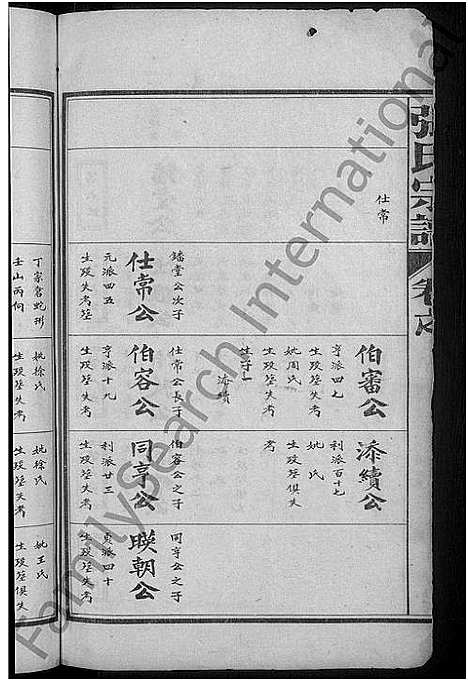 張氏宗譜
卷
仕常
伯審公
亨派四七
生歿塟失考
妣周氏
生歿失考
生子一
添續
添續公
利派百十七
妣 氏
生歿塟俱失
考
鐇堂公次子
仕常公
元派四五
生歿失考塟
丁家窩蛇形
壬山丙向
仕常公長子
伯容公
亨派十九
生歿塟失考
妣徐氏
生歿塟失考
伯容公之子
同亨公
利派廿三
生歿塟失考
妣徐氏
生歿塟失考
同亨公之子
朕朝公
貞派四十
生歿塟失考
妣王氏
生歿塟俱失
FamilySearch International